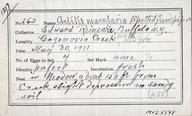 No. 263 Actitis macularia Spotted Sandpiper
Collector, Edward Reinecke, Buffalo N.Y.
Locality, Cazenovia Creek
Date May 30, 1911
No. of Eggs in Set 4
Identity, Incubation fresh
Nest in Meadow about 15 ft. from
Creek, slight depression in sandy
soil